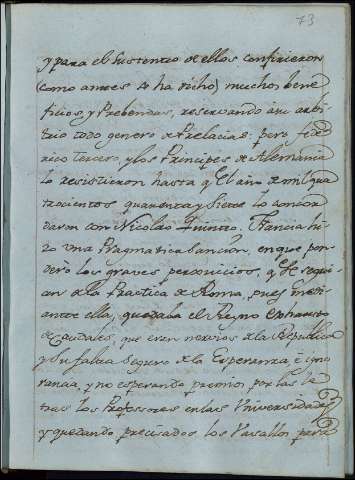 73
y para el Sustento de ellos confirieron
(como antes se ha dicho) muchos bene
ficios, y Prebendas, reservando à su arbi
trio todo genero de Prelacias: pero Fede
rico Tercero, y los Principes de Alemania
lo resistieron hasta q̃ el año de mil qua
trocientos quarenta y siete lo concor
daron con Nicolao Quinto. Francia hi
zo una Pragmatica Sancion, en que pon
deró los graves perjuicios, q̃ se segui
an de la Practica de Roma, pues medi
ante ella, quedaba el Reyno exhausto
de Caudales, que eran nervios de la Republica
y su falta seguro de la Esperanza, è igno
rancia, y no esperando premios por las le
tras los Profesores en las Universidades
y quedando precisados los Vasallos para